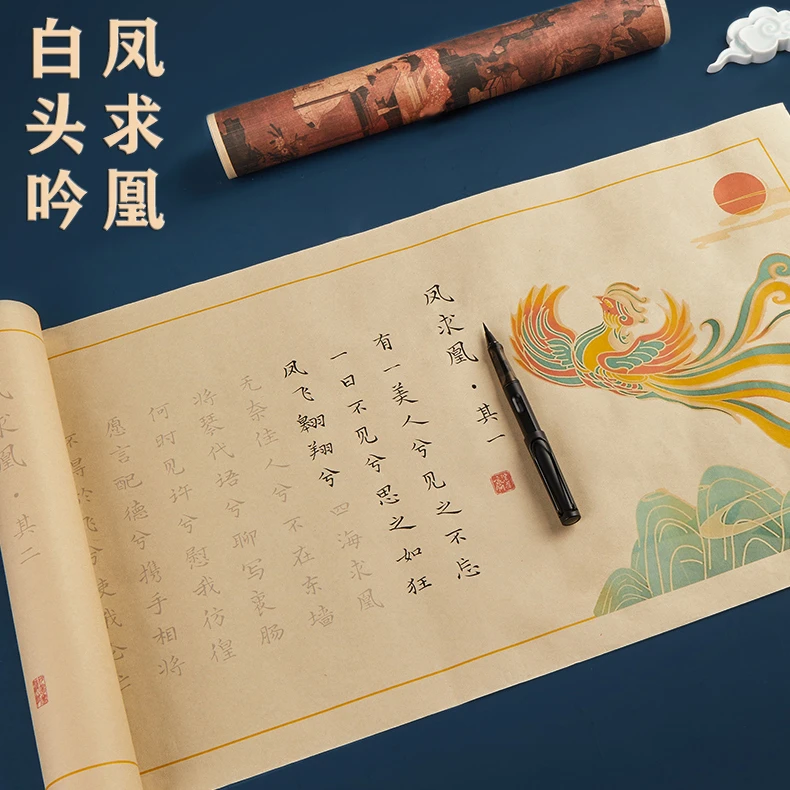 凤求凰
白头吟
凤求凰·其一
有一美人兮见之不忘
一日不见兮思之如狂
凤飞翱翔兮四海求凰
无奈佳人兮不在东墙
将琴代语兮聊写衷肠
何时见许兮慰我彷徨
愿言配德兮携手相将
不得於飞兮使我
凤求凰·其二